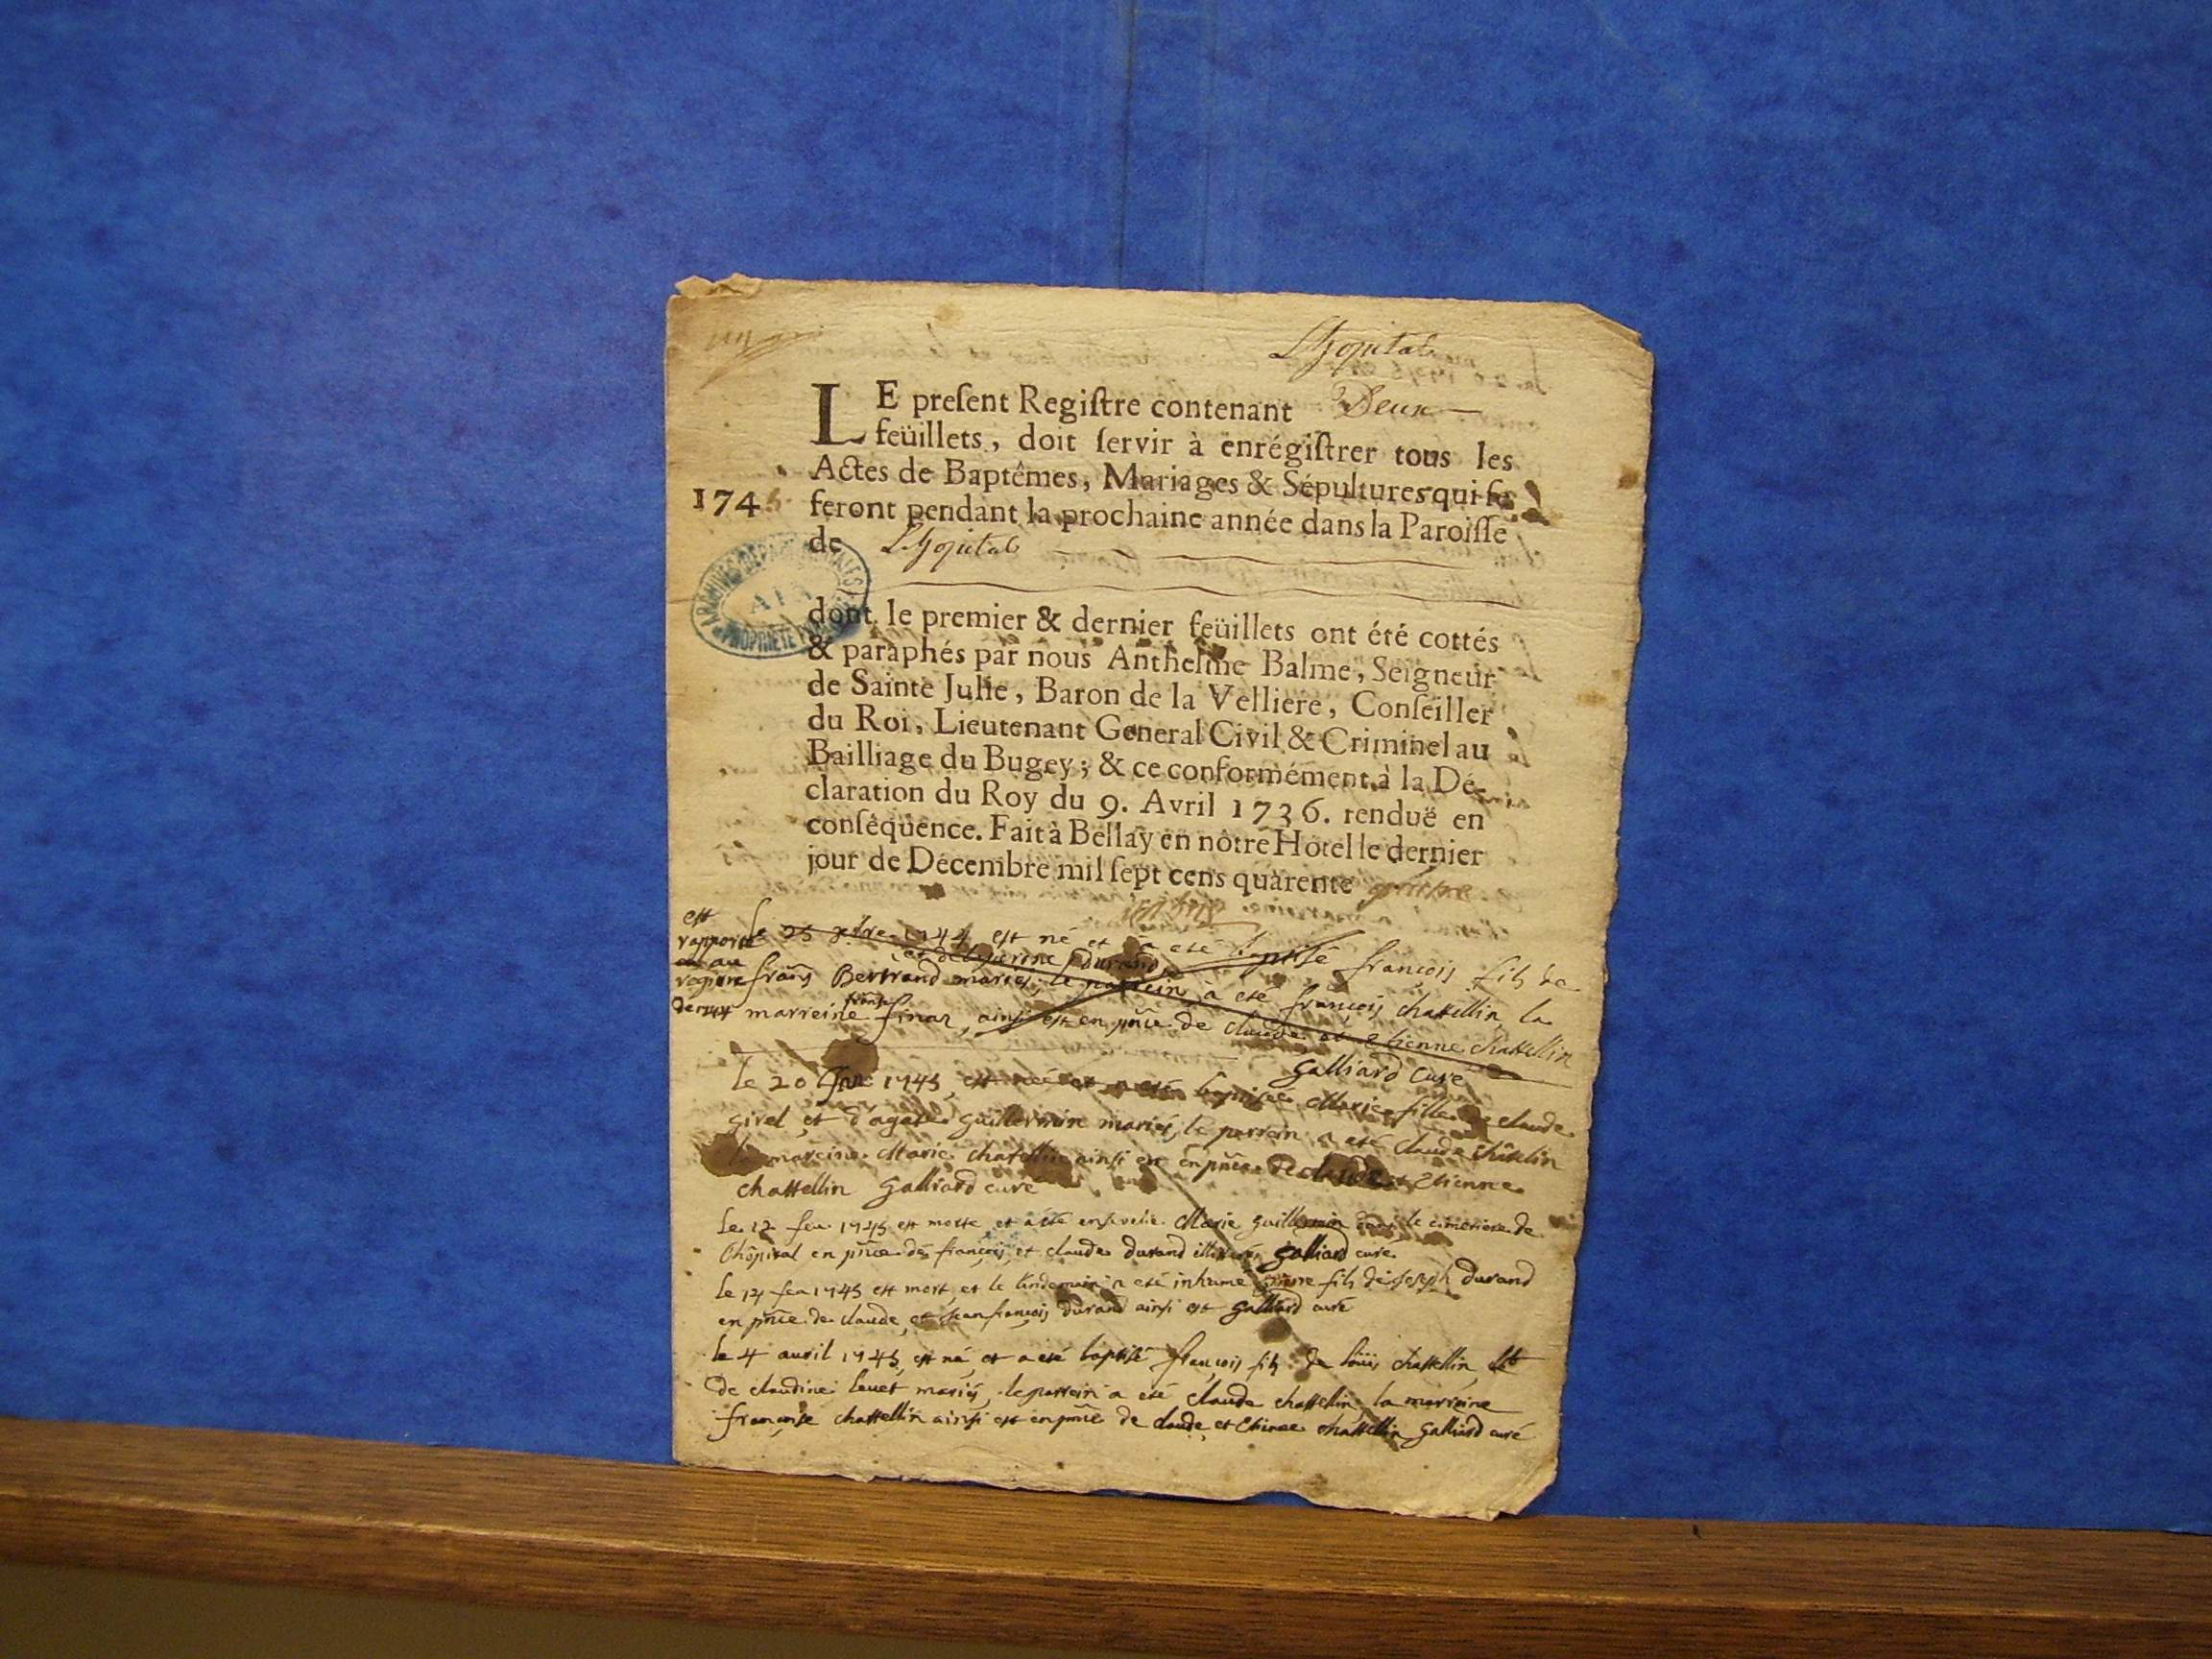 Lhopital
LE preſent Regiſtre contenant Deux
feüillets, doit ſervir à enrégiſtrer tous les
Actes de Baptêmes, Mariages & Sépultures qui ſe
1745 feront pendant la prochaine année dans la Paroiſſe
de Lhopital
ARCHIVES DEPARTEMENTALES AIN PROPRIETE
dont le premier & dernier feüillets ont été cottés
& paraphés par nous Anthelme Balme, Seigneur
de Sainte Julie, Baron de la Velliere, Conſeiller
du Roi, Lieutenant General Civil & Criminel au
Bailliage du Bugey; & ce conformément à la Dé-
claration du Roy du 9. Avril 1736. renduë en
conſéquence. Fait à Bellay en nôtre Hôtel le dernier
jour de Décembre mil ſept cens quarente quatre
est
rapporté
au
registre
de 1744
le 25 1744 est né et a eté baptisé françois fils de
frañs Bertrand et de durand mariés, le parrein a eté françois chattellin, la
marreine ainsi est en pñce de claude et etienne chattellin
Galliard curé
le 20 1745 est née et a eté baptisée Marie fille de claude
girel et d'agathe guillermin mariés, le parrein a eté claude châtelin
la mareine Marie chatellin ainsi est en pñce de claude et etienne
chattellin Galliard curé
Le 12 feu 1745 est morte et a eté ensevelie Marie guillermin dans le cimetiere de
lhôpital en pñce de françois et claude durand Galliard curé
Le 14 feu 1745 est mort et le lendemain a eté inhumé pierre fils de Joseph durand
en pñce de claude et Jean françois durand ainsi est Galliard curé
le 4 auril 1745 est né et a eté baptisé françois fils de loüis chattellin et
de claudine leuet mariés, le parrein a eté claude chattellin, la marreine
françoise chattellin ainsi est en pñce de claude et etienne chattellin Galliard curé